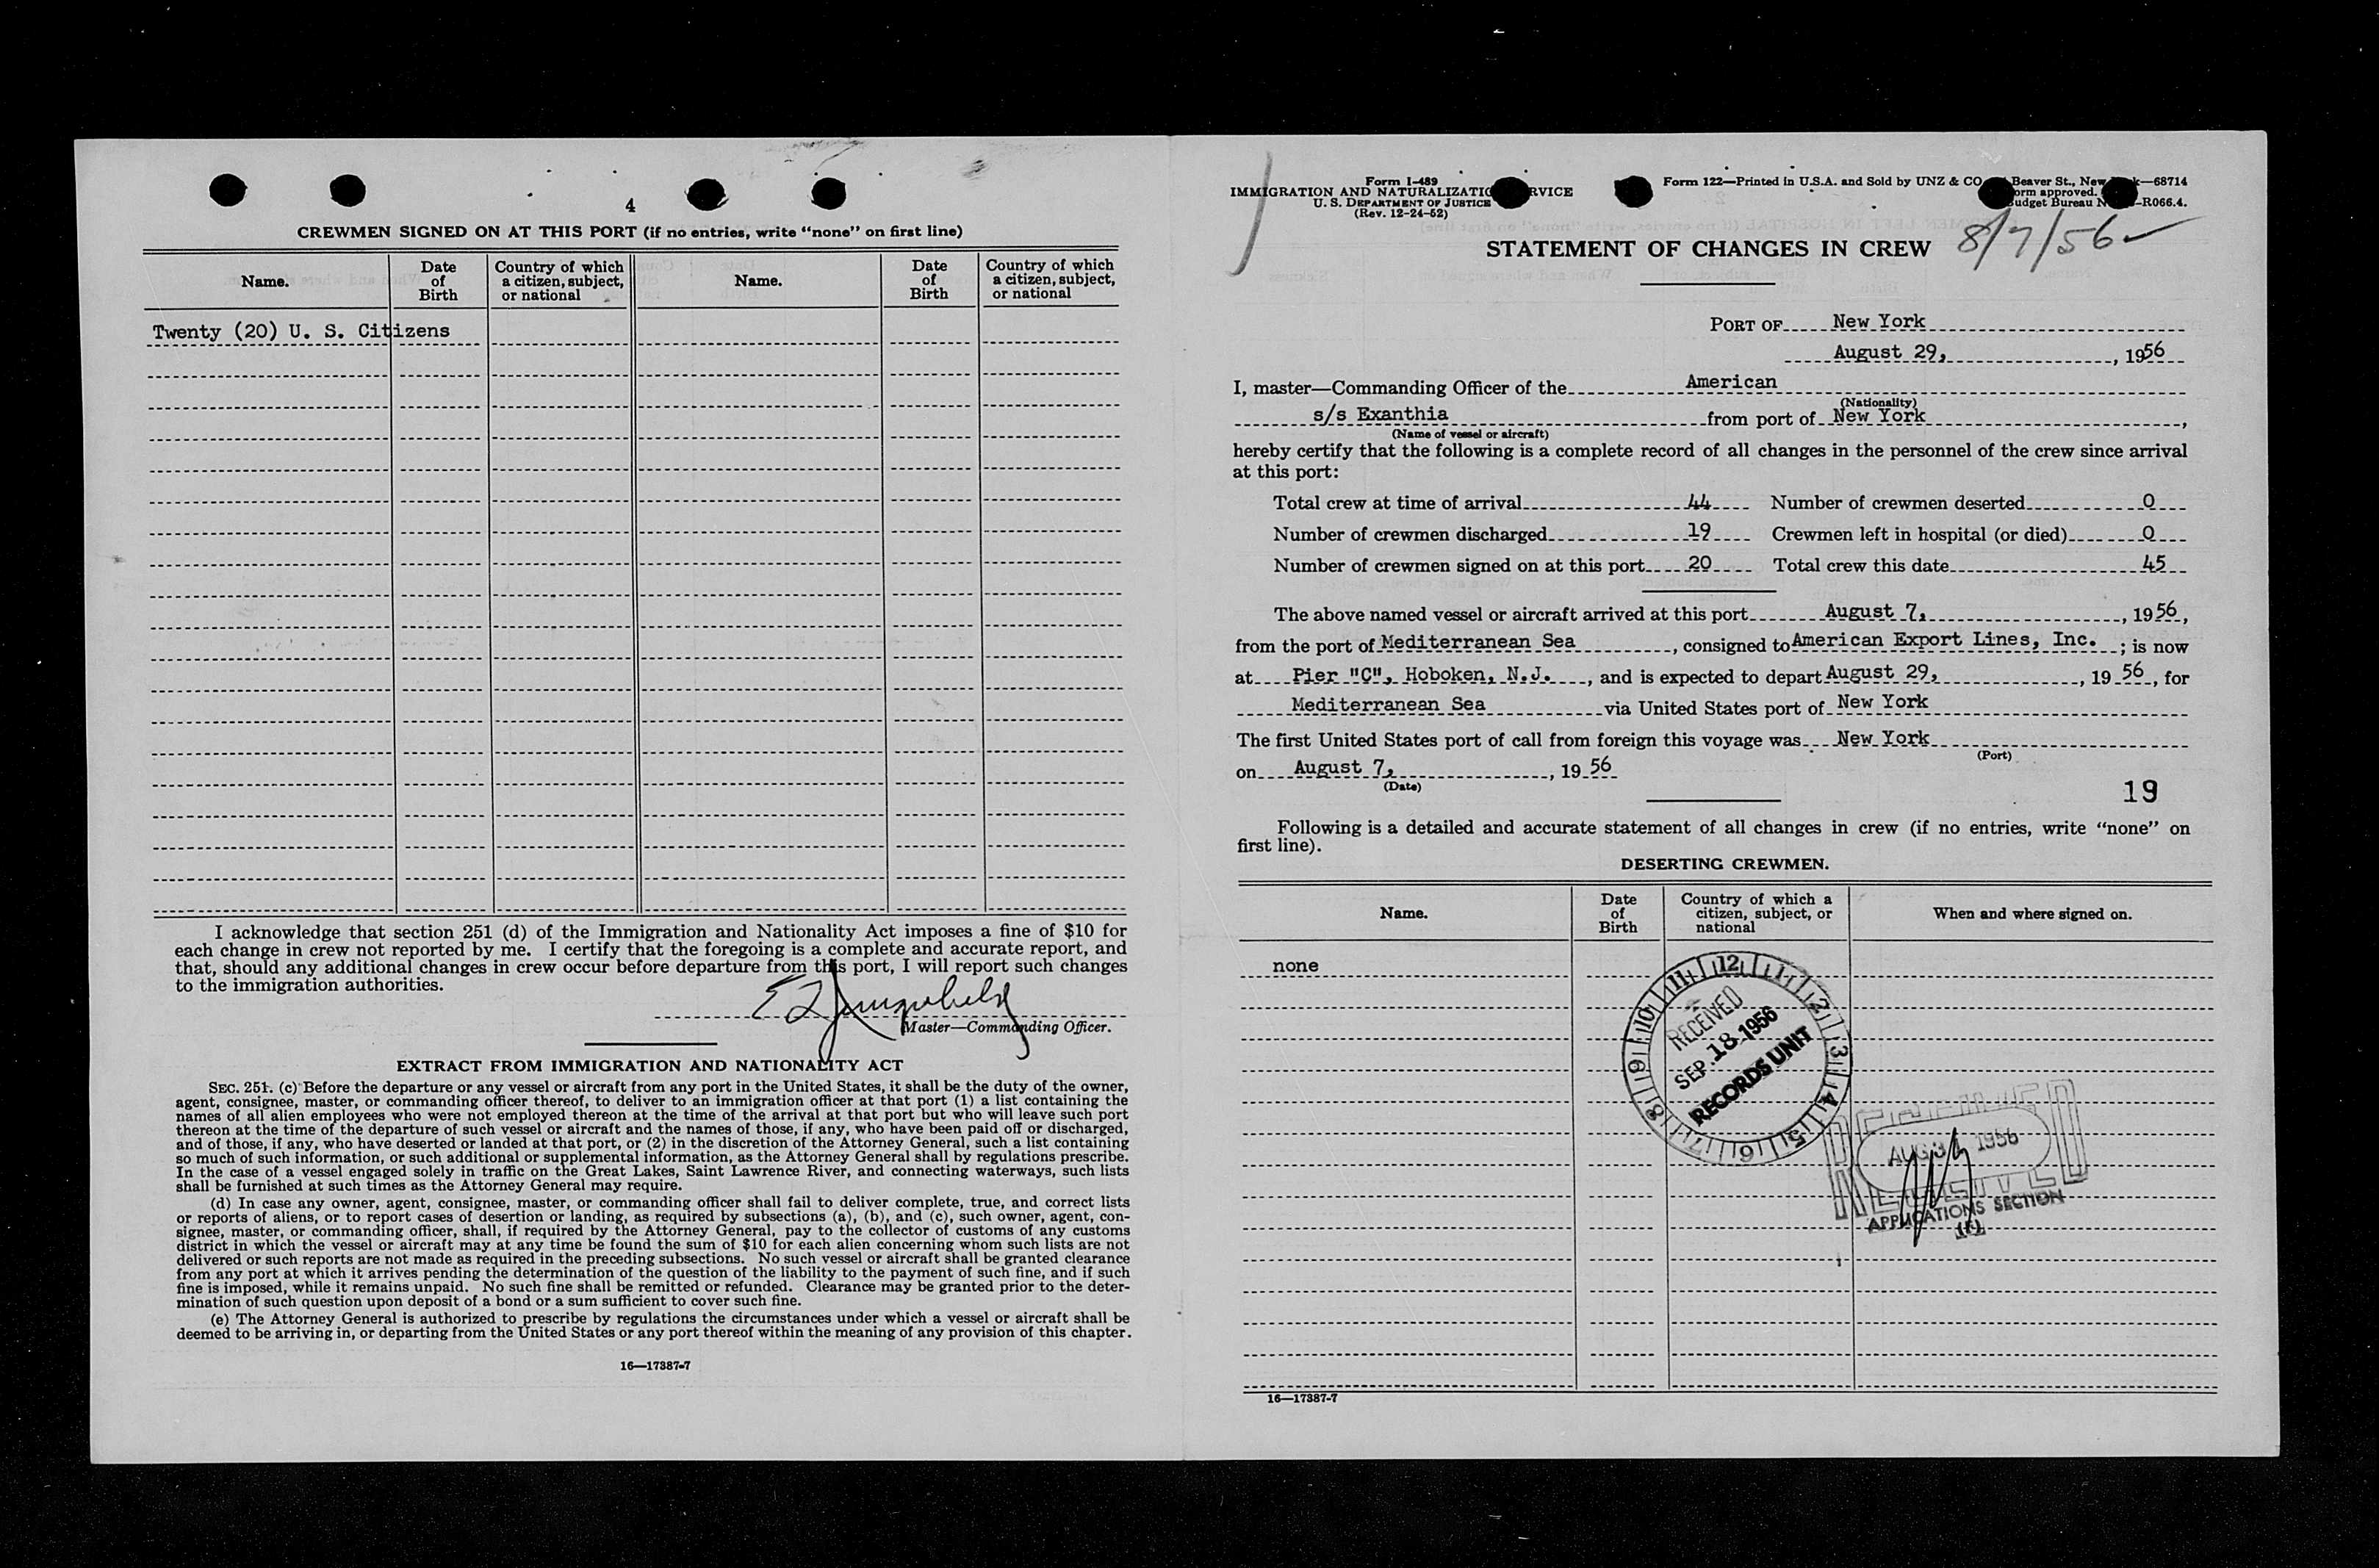 4
CREWMEN SIGNED ON AT THIS PORT (if no entries, write "none" on first line)
Name.
Date of Birth
Country of which a citizen, subject, or national
Name.
Date of Birth
Country of which a citizen, subject, or national
Twenty (20) U. S. Citizens
I acknowledge that section 251 (d) of the Immigration and Nationality Act imposes a fine of $10 for
each change in crew not reported by me. I certify that the foregoing is a complete and accurate report, and
that, should any additional changes in crew occur before departure from this port, I will report such changes
to the immigration authorities.
Master—Commanding Officer.
EXTRACT FROM IMMIGRATION AND NATIONALITY ACT
SEC. 251. (c) Before the departure or any vessel or aircraft from any port in the United States, it shall be the duty of the owner,
agent, consignee, master, or commanding officer thereof, to deliver to an immigration officer at that port (1) a list containing the
names of all alien employees who were not employed thereon at the time of the arrival at that port but who will leave such port
thereon at the time of the departure of such vessel or aircraft and the names of those, if any, who have been paid off or discharged,
and of those, if any, who have deserted or landed at that port, or (2) in the discretion of the Attorney General, such a list containing
so much of such information, or such additional or supplemental information, as the Attorney General shall by regulations prescribe.
In the case of a vessel engaged solely in traffic on the Great Lakes, Saint Lawrence River, and connecting waterways, such lists
shall be furnished at such times as the Attorney General may require.
(d) In case any owner, agent, consignee, master, or commanding officer shall fail to deliver complete, true, and correct lists
or reports of aliens, or to report cases of desertion or landing, as required by subsections (a), (b), and (c), such owner, agent, con-
signee, master, or commanding officer, shall, if required by the Attorney General, pay to the collector of customs of any customs
district in which the vessel or aircraft may at any time be found the sum of $10 for each alien concerning whom such lists are not
delivered or such reports are not made as required in the preceding subsections. No such vessel or aircraft shall be granted clearance
from any port at which it arrives pending the determination of the question of the liability to the payment of such fine, and if such
fine is imposed, while it remains unpaid. No such fine shall be remitted or refunded. Clearance may be granted prior to the deter-
mination of such question upon deposit of a bond or a sum sufficient to cover such fine.
(e) The Attorney General is authorized to prescribe by regulations the circumstances under which a vessel or aircraft shall be
deemed to be arriving in, or departing from the United States or any port thereof within the meaning of any provision of this chapter.
16—17387-7
Form I-489
IMMIGRATION AND NATURALIZATIO RVICE
U. S. DEPARTMENT OF JUSTICE
(Rev. 12-24-52)
Form 122—Printed in U.S.A. and Sold by UNZ & CO Beaver St., New k—68714
orm approved.
udget Bureau N -R066.4.
8/7/56
STATEMENT OF CHANGES IN CREW
PORT OF New York
August 29, , 1956
I, master—Commanding Officer of the American
(Nationality)
s/s Exanthia from port of New York,
(Name of vessel or aircraft)
hereby certify that the following is a complete record of all changes in the personnel of the crew since arrival
at this port:
Total crew at time of arrival 44 Number of crewmen deserted 0
Number of crewmen discharged 19 Crewmen left in hospital (or died) 0
Number of crewmen signed on at this port 20 Total crew this date 45
The above named vessel or aircraft arrived at this port August 7, , 1956,
from the port of Mediterranean Sea , consigned to American Export Lines, Inc. ; is now
at Pier "C", Hoboken, N.J. , and is expected to depart August 29, , 19 56 , for
Mediterranean Sea via United States port of New York
The first United States port of call from foreign this voyage was New York
(Port)
on August 7, , 19 56
(Date)
19
Following is a detailed and accurate statement of all changes in crew (if no entries, write "none" on
first line).
DESERTING CREWMEN.
Name.
Date of Birth
Country of which a citizen, subject, or national
When and where signed on.
none
11 12 1 2 3 4 5 6 7 8 9 10
RECEIVED
SEP. 18 1956
RECORDS UNIT
RECEIVED
1956
APPLICATIONS SECTION
16—17387-7